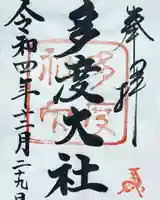 奉拝
多度大社
令和四年十二月二十九日